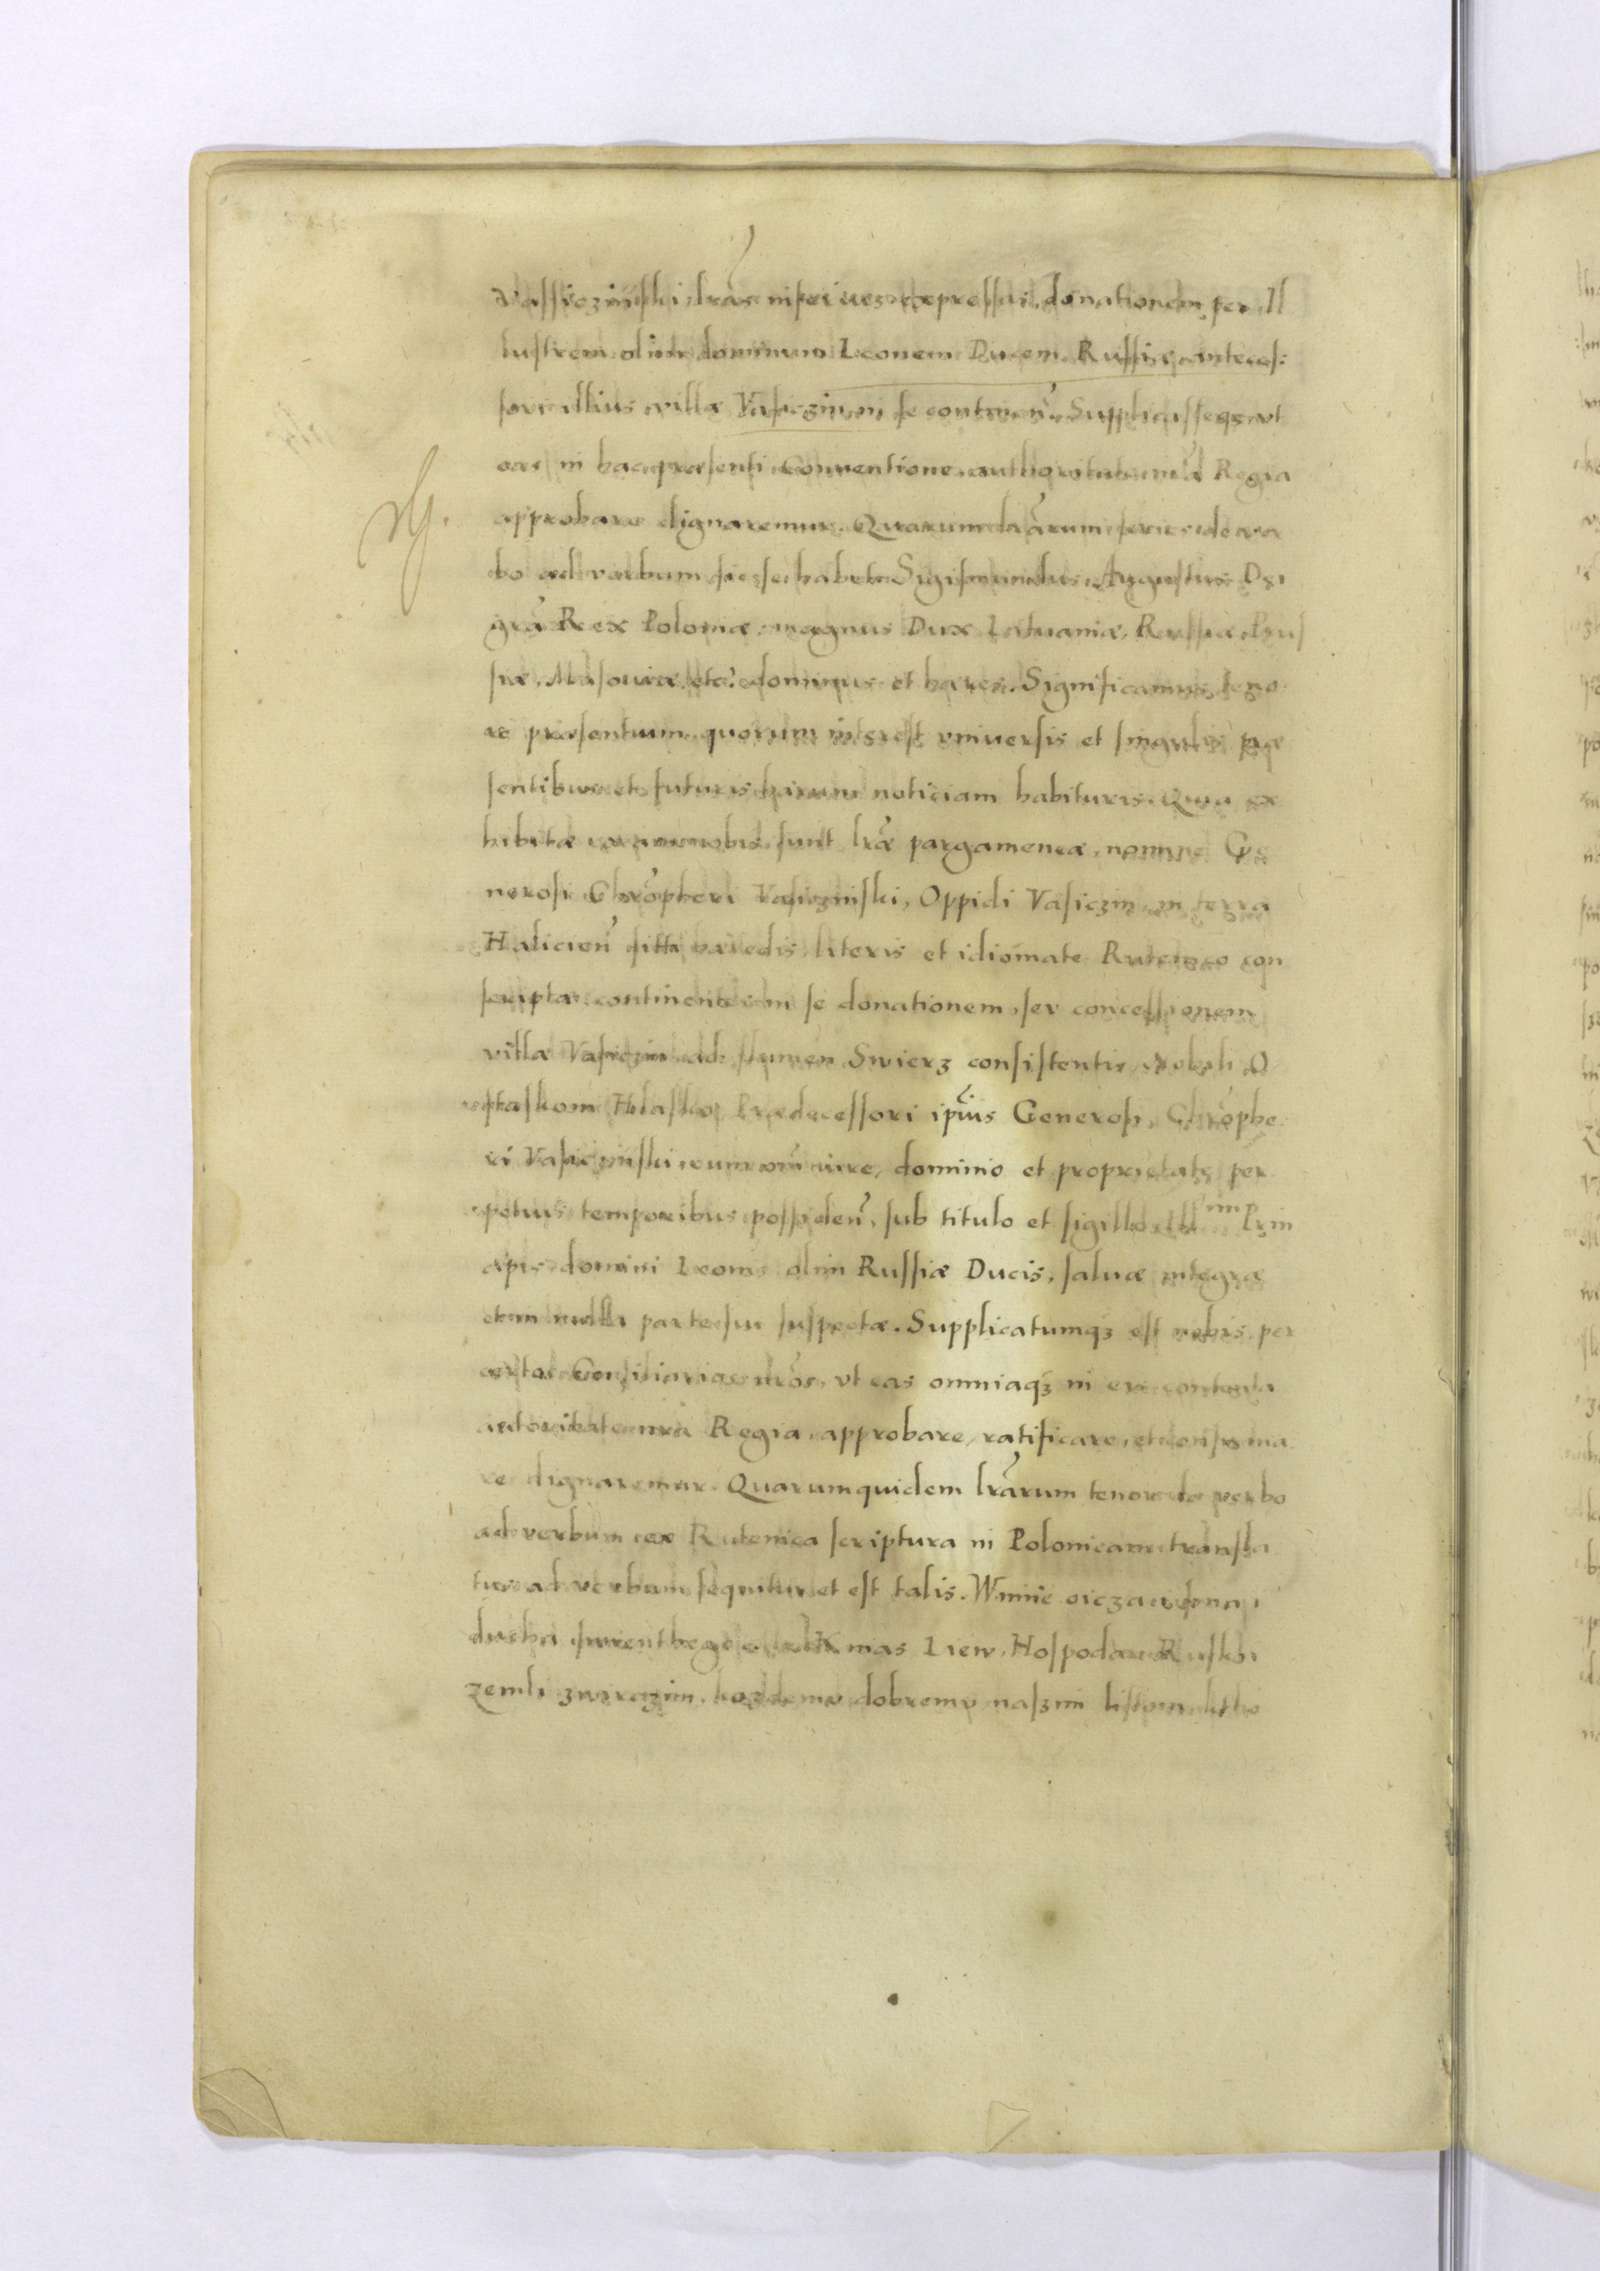 Vassiczinski, lr̃as inferius expressas, donationem per Il
lustrem olim dominum Leonem Ducem Russiæ anteces:
sori illius villæ Vasiczin in se continen̄. Supplicasseqz vt
eas in hac præsenti Conuentione authoritate nr̃a Regia
approbare dignaremur. Quarum lr̃arum series de ver
bo ad verbum sic se habet. Sigismundus Augustus Dei
gr̃a Rex Poloniæ, magnus Dux Lituaniæ, Russiæ, Prus
siæ, Masouiæ etc. dominus et hæres. Significamus teno
re præsentium quorum interest vniuersis et singulis præ
sentibus et futuris harum noticiam habituris. Quia ex
hibitæ coram nobis sunt lr̃æ pargameneæ, nomine Ge
nerosi Chr̃opheri Vasiczinski, Oppidi Vasiczin in terra
Halicien̄ hæredis, literis et idiomate Rutenico con
scriptæ continentes in se donationem, seu concessionem
villæ Vasiczin ad flumen Swierz consistentis, Nobili O
staskom Prædecessori ip̃ius Generosi Chr̃ophe
ri Vasiczinski cum om̄i iure, dominio et proprietate per
petuis temporibus possiden̄, sub titulo et sigillo Prin
cipis domini Leonis olim Russiæ Ducis, saluæ integræ
et in nulla parte sui suspectæ. Supplicatumqz est nobis per
certos Consiliarios nr̃os, vt eas omniaqz in eis contenta
autoritate nr̃a Regia approbare, ratificare, et confirma
re dignaremur. Quarumquidem lr̃arum tenor de verbo
ad verbum ex Rutenica scriptura in Polonicam transla
tus ad verbum sequitur et est talis. Wimie oicza i sina i
ducha swienthego Knias Liew, Hospodar Ruskei
zemli dobremu naszim listom